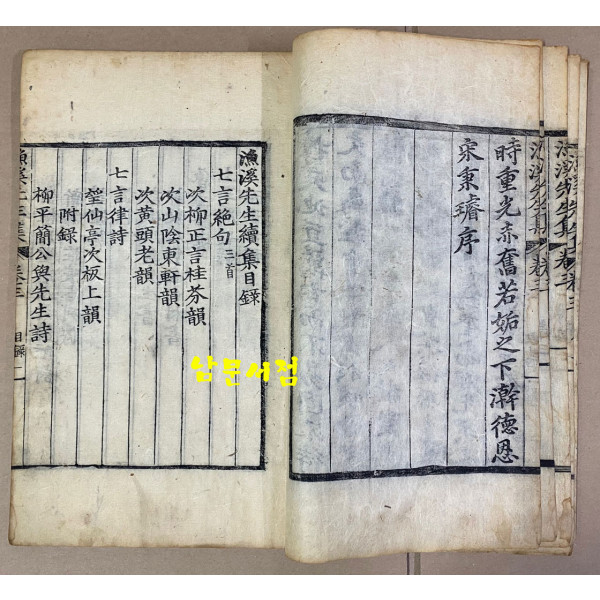 時重光赤奮若姤之下澣德恩
宋秉璿序
漁溪先生續集目錄
七言絕句三首
次柳正言桂芬韻
次山陰東軒韻
次黃頭老韻
七言律詩
瑩仙亭次板上韻
附錄
柳平簡公與先生詩
漁溪先生集 卷三 目錄 一
남문서점